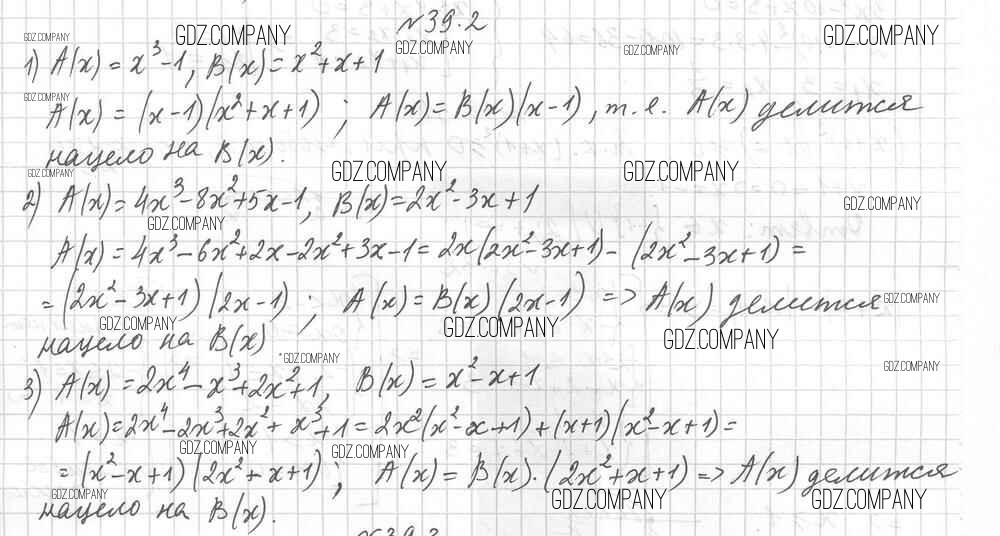 №39.2
GDZ.COMPANY GDZ.COMPANY GDZ.COMPANY GDZ.COMPANY GDZ.COMPANY
1) A(x) = x³-1, B(x) = x²+x+1
GDZ.COMPANY
A(x) = (x-1)(x²+x+1) ; A(x) = B(x)(x-1), т.е. A(x) делится
нацело на B(x).
GDZ.COMPANY GDZ.COMPANY GDZ.COMPANY
2) A(x) = 4x³-8x²+5x-1, B(x) = 2x²-3x+1
GDZ.COMPANY GDZ.COMPANY
A(x) = 4x³-6x²+2x-2x²+3x-1 = 2x(2x²-3x+1) - (2x²-3x+1) =
= (2x²-3x+1)(2x-1) ; A(x) = B(x)(2x-1) => A(x) делится
GDZ.COMPANY GDZ.COMPANY GDZ.COMPANY
нацело на B(x)
GDZ.COMPANY
GDZ.COMPANY GDZ.COMPANY
3) A(x) = 2x⁴-x³+2x²+1, B(x) = x²-x+1
A(x) = 2x⁴-2x³+2x²+x³+1 = 2x²(x²-x+1)+(x+1)(x²-x+1) =
GDZ.COMPANY GDZ.COMPANY
= (x²-x+1)(2x²+x+1) ; A(x) = B(x)·(2x²+x+1) => A(x) делится
GDZ.COMPANY GDZ.COMPANY GDZ.COMPANY
нацело на B(x).